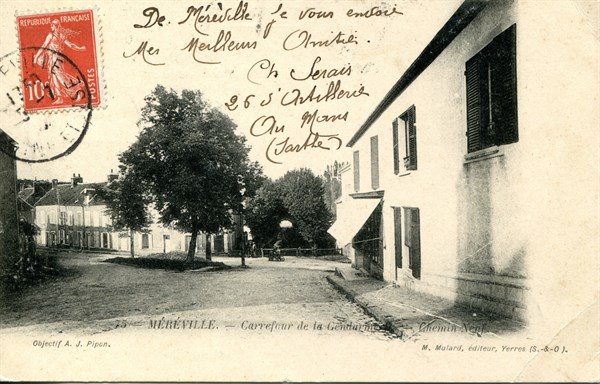 RÉPUBLIQUE FRANÇAISE
10c
POSTES
De Méréville je vous envoie
Mes Meilleurs Amitié.
Ch Serais
26 d'Artillerie
Au Mans
(Sarthe)
75 — MÉRÉVILLE. — Carrefour de la Gendarmerie — Chemin Neuf
Objectif A. J. Pipon.
M. Mulard, éditeur, Yerres (S.-&-O).